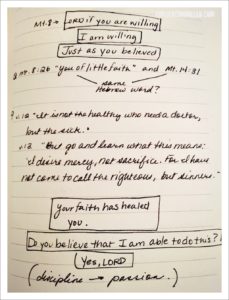 Mt. 8 → LORD if you are willing
I am willing
Just as you believed
Mt. 8:26 "you of little faith" and Mt. 14:31
same
Hebrew word?
v.12 "It is not the healthy who need a doctor,
but the sick."
v.13 "But go and learn what this means:
'I desire mercy, not sacrifice. For I have
not come to call the righteous, but sinners."
your faith has healed
you.
Do you believe that I am able to do this?
Yes, LORD
(discipline → passion.)